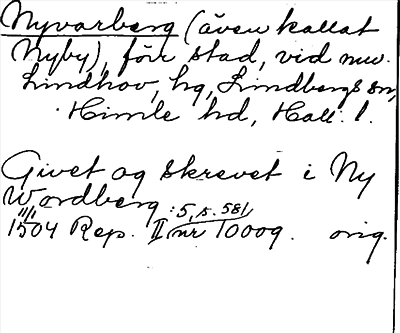 Nyvarberg (även kallat
Nyby), förr stad, vid nuv.
Lindhov, hg, Lindbergs sn,
Himle hd, Hall. l.
Givet og skrevet i Ny
Wardberg
11/1 :5, s. 581/
1504 Rep. II nr 10009. orig.